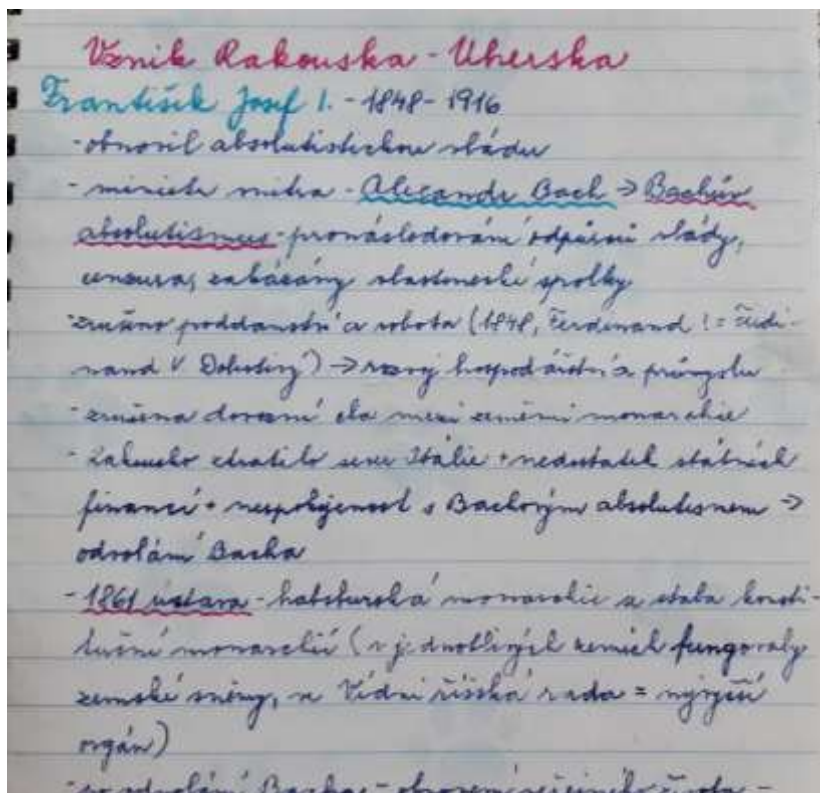 Vznik Rakouska - Uherska
František Josef I. - 1848 - 1916
- obnovil absolutistickou vládu
- ministr vnitra - Alexandr Bach → Bachův
absolutismus - pronásledování odpůrců vlády,
cenzura, zakázány vlastenecké spolky
- zrušeno poddanství a robota (1848, Ferdinand I. = Ferdi-
nand V Dobrotivý) → rozvoj hospodářství a průmyslu
- zrušena dovozní cla mezi zeměmi monarchie
- Rakousko ztratilo sever Itálie + nedostatek státních
financí + nespokojenost s Bachovým absolutismem →
odvolání Bacha
- 1861 ústava - habsburská monarchie se stala konsti-
tuční monarchií (v jednotlivých zemích fungovaly
zemské sněmy, ve Vídni říšská rada = nejvyšší
orgán)
- po odvolání Bacha - obnovení veřejného života -